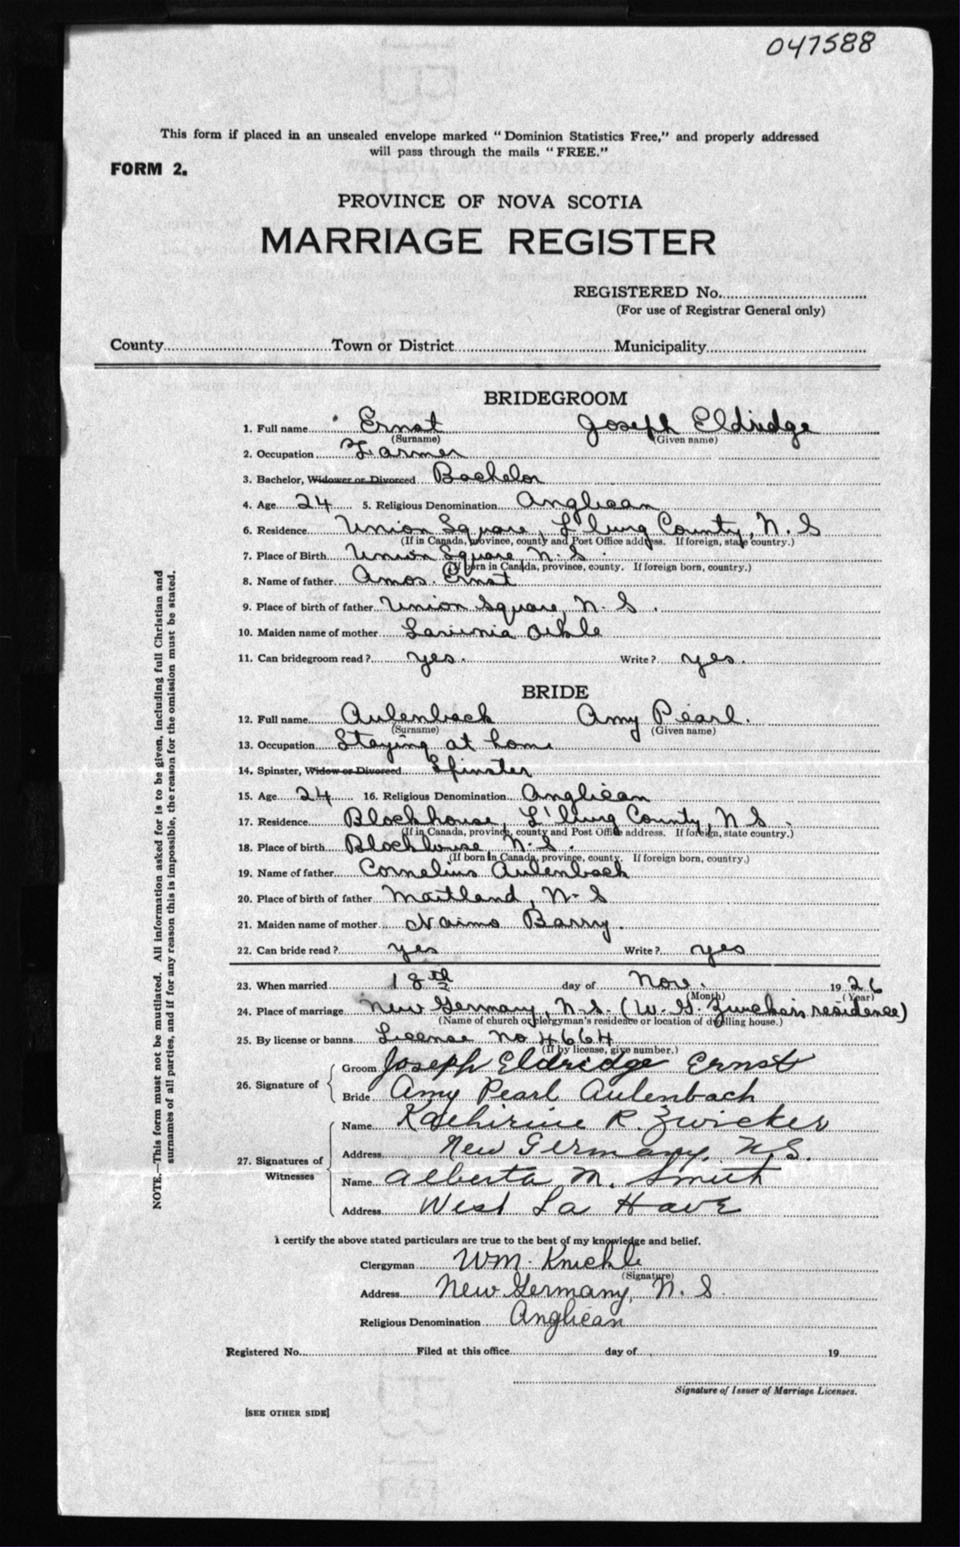 047588
This form if placed in an unsealed envelope marked "Dominion Statistics Free," and properly addressed
will pass through the mails "FREE."
FORM 2.
PROVINCE OF NOVA SCOTIA
MARRIAGE REGISTER
REGISTERED No.
(For use of Registrar General only)
County Town or District Municipality
BRIDEGROOM
1. Full name Ernst Joseph Eldridge
(Surname) (Given name)
2. Occupation Farmer
3. Bachelor, Widower or Divorced Bachelor
4. Age 24 5. Religious Denomination Anglican
6. Residence Union Square, L'burg County, N. S
(If in Canada, province, county and Post Office address. If foreign, state country.)
7. Place of Birth Union Square, N. S.
(If born in Canada, province, county. If foreign born, country.)
8. Name of father Amos Ernst
9. Place of birth of father Union Square, N. S.
10. Maiden name of mother
11. Can bridegroom read? yes. Write? yes.
BRIDE
12. Full name Aulenback Amy Pearl.
(Surname) (Given name)
13. Occupation Staying at home
14. Spinster, Widow or Divorced Spinster
15. Age 24 16. Religious Denomination Anglican
17. Residence Blockhouse, L'burg County, N S.
(If in Canada, province, county and Post Office address. If foreign, state country.)
18. Place of birth Blockhouse, N. S.
(If born in Canada, province, county. If foreign born, country.)
19. Name of father Cornelius Aulenback
20. Place of birth of father Maitland, N. S
21. Maiden name of mother Naimo Barry.
22. Can bride read? yes Write? yes
23. When married 18th day of Nov. 1926
(Month) (Year)
24. Place of marriage New Germany, N.S. (W. G. Zwicker's residence)
(Name of church or clergyman's residence or location of dwelling house.)
25. By license or banns License No 4664
(If by license, give number.)
26. Signature of
Groom Joseph Eldridge Ernst
Bride Amy Pearl Aulenbach
27. Signatures of Witnesses
Name Kathirine R. Zwicker
Address New Germany, N.S.
Name Alberta M. Smith
Address West La Have
I certify the above stated particulars are true to the best of my knowledge and belief.
Clergyman WM.
(Signature)
Address New Germany, N. S.
Religious Denomination Anglican
Registered No. Filed at this office day of 19
Signature of Issuer of Marriage Licenses.
[SEE OTHER SIDE]
NOTE.—This form must not be mutilated. All information asked for is to be given, including full Christian and
surnames of all parties, and if for any reason this is impossible, the reason for the omission must be stated.